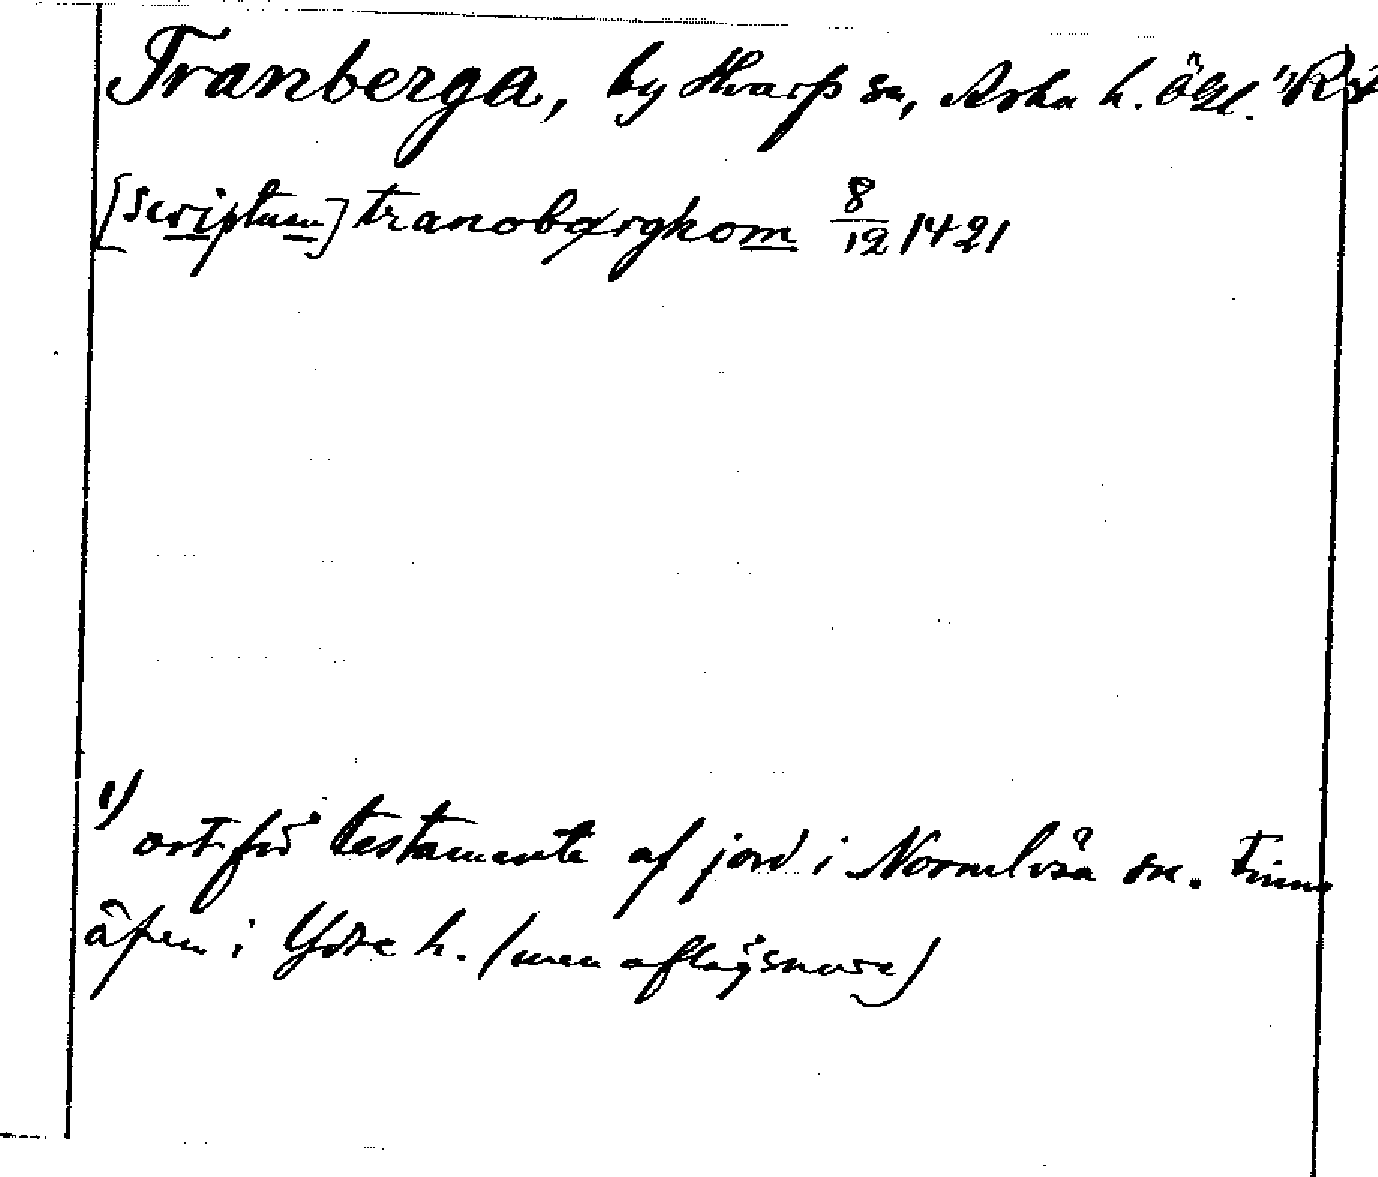 Tranberga, by Hvarf sn, Aska h. Ögl. ¹⁾ Rä
[scriptum] tranobærghom 8/12 1421
1)
ort för testamente af jord i Normlösa sn. Finns
äfven i Ydre h. (men aflägsnare)